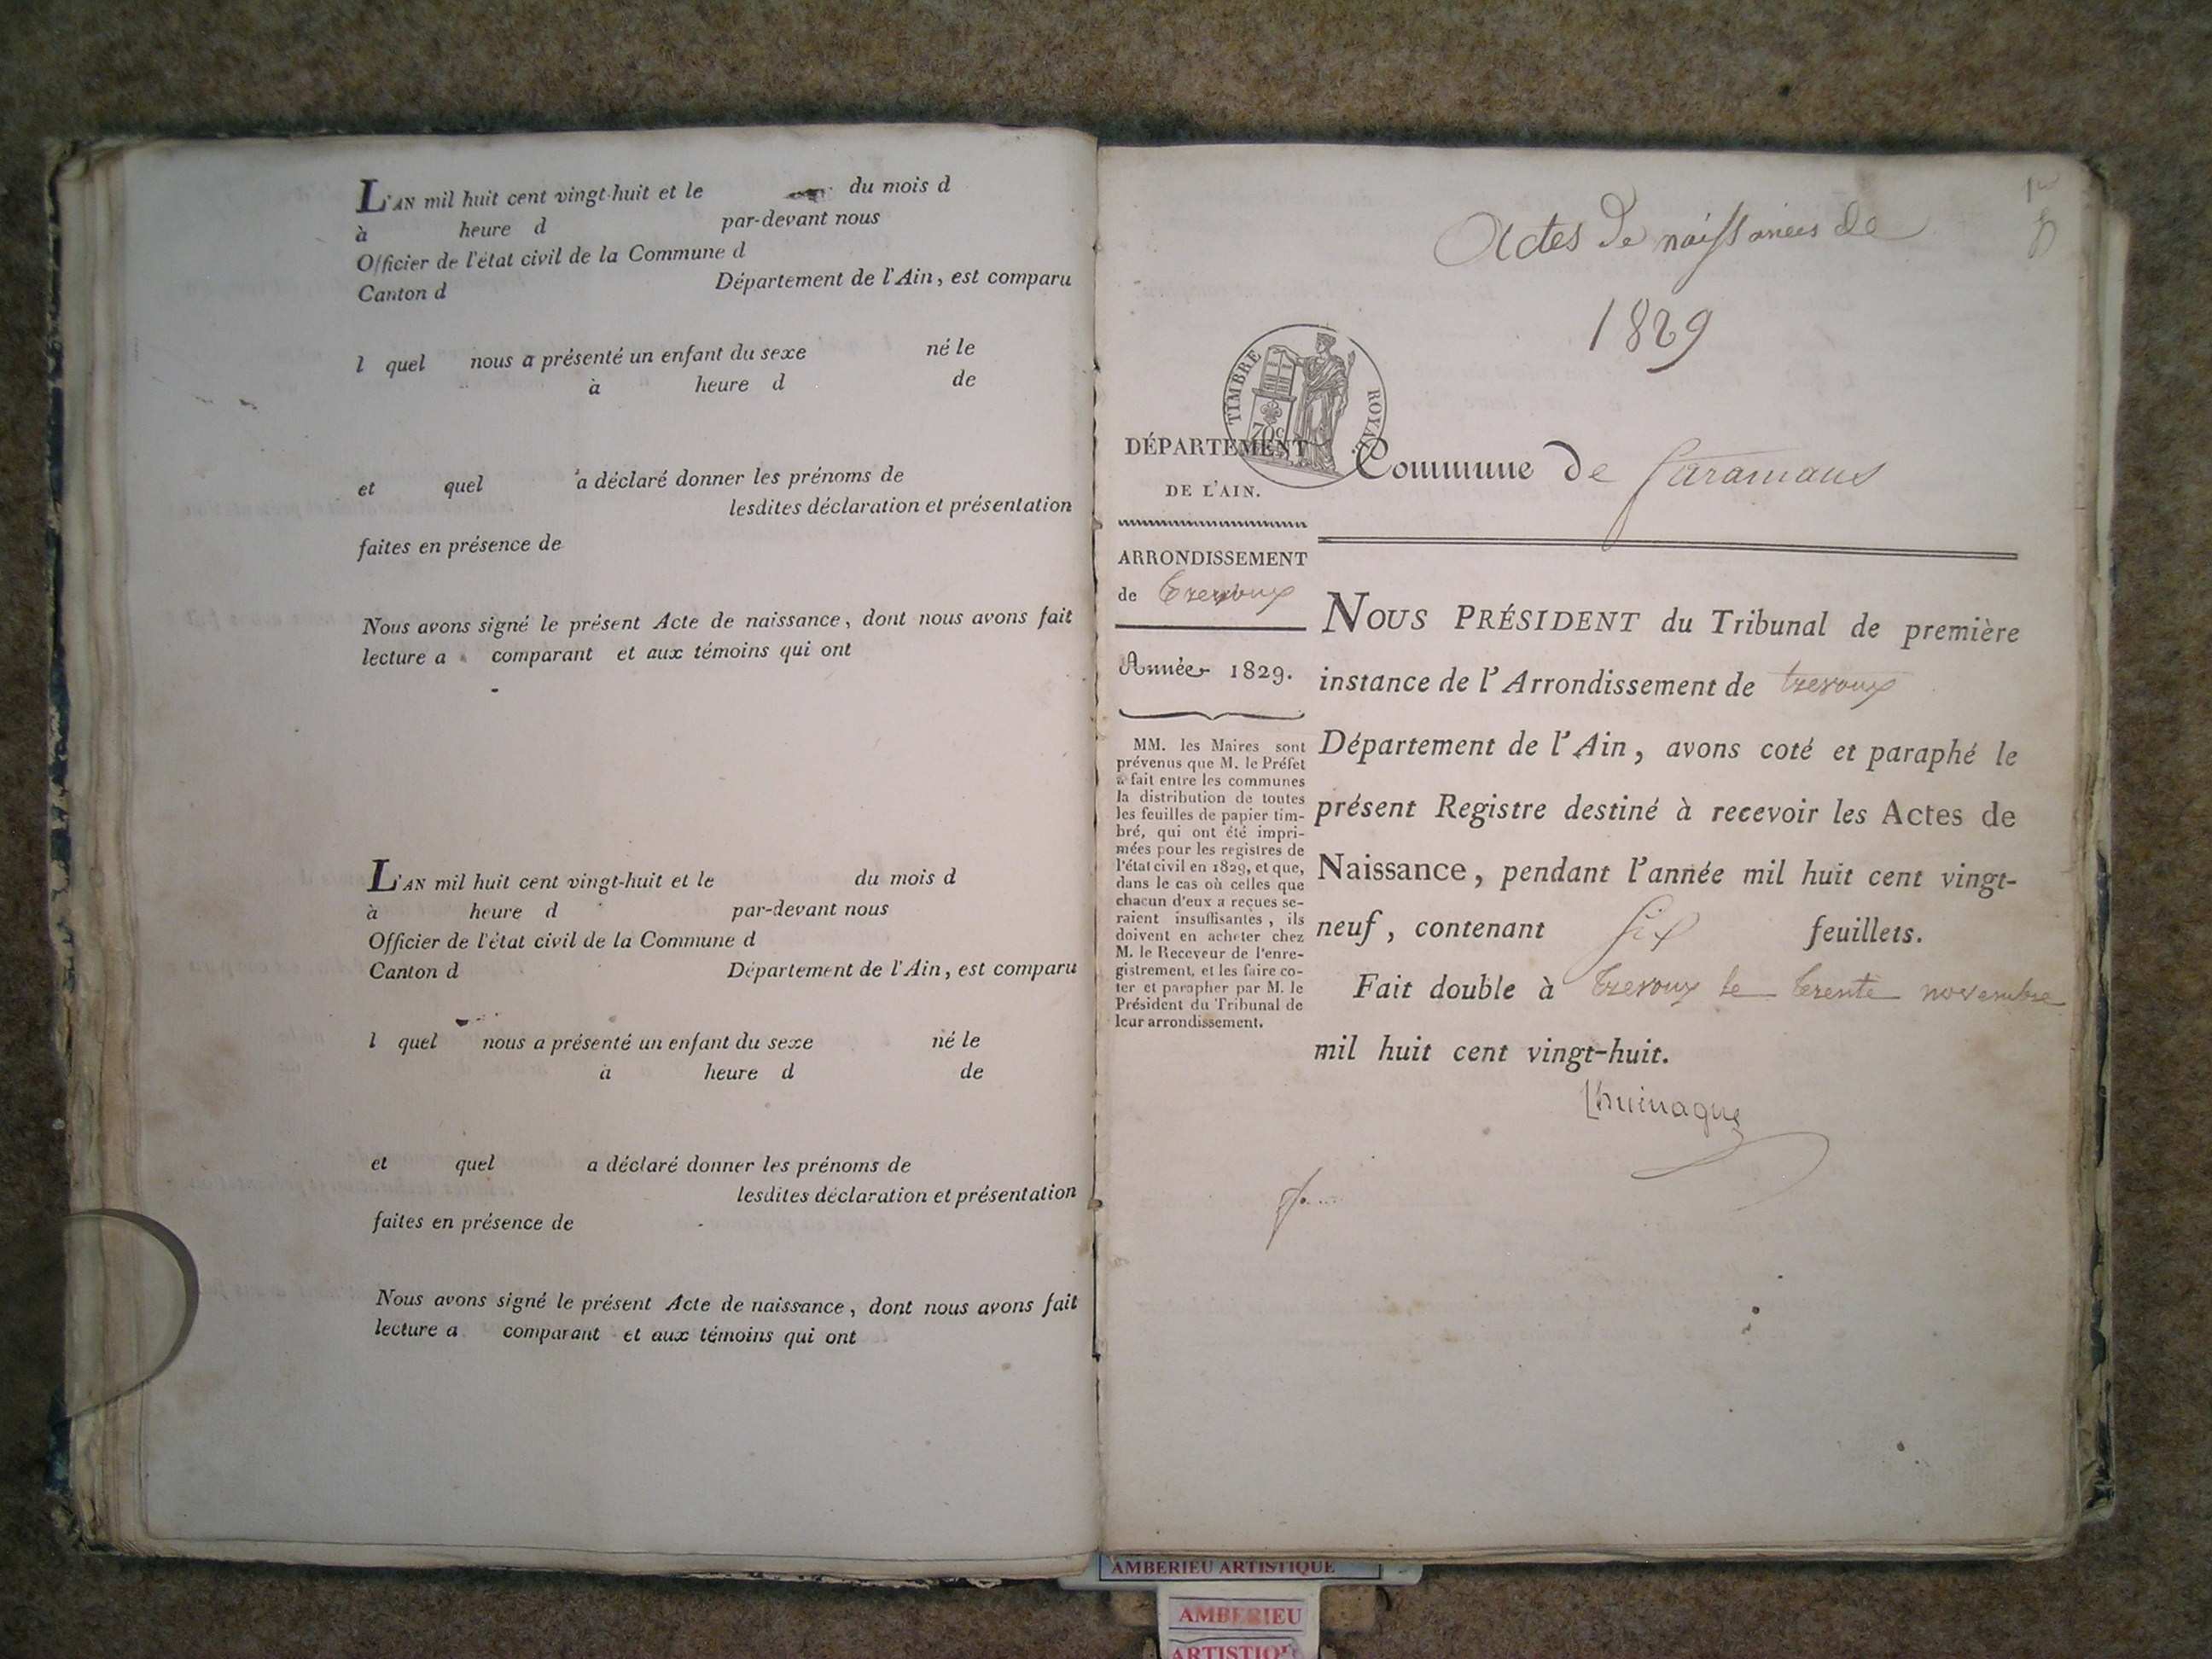 L'AN mil huit cent vingt-huit et le du mois d
à heure d par-devant nous
Officier de l'état civil de la Commune d
Canton d Département de l'Ain, est comparu
l quel nous a présenté un enfant du sexe né le
à heure d de
et quel a déclaré donner les prénoms de
lesdites déclaration et présentation
faites en présence de
Nous avons signé le présent Acte de naissance, dont nous avons fait
lecture a comparant et aux témoins qui ont
L'AN mil huit cent vingt-huit et le du mois d
à heure d par-devant nous
Officier de l'état civil de la Commune d
Canton d Département de l'Ain, est comparu
l quel nous a présenté un enfant du sexe né le
à heure d de
et quel a déclaré donner les prénoms de
lesdites déclaration et présentation
faites en présence de
Nous avons signé le présent Acte de naissance, dont nous avons fait
lecture a comparant et aux témoins qui ont
Actes de naissances de
1829
TIMBRE ROYAL
70c
DÉPARTEMENT
DE L'AIN.
Commune de
ARRONDISSEMENT
de Trevoux
Année 1829.
MM. les Maires sont
prévenus que M. le Préfet
a fait entre les communes
la distribution de toutes
les feuilles de papier tim-
bré, qui ont été impri-
mées pour les registres de
l'état civil en 1829, et que,
dans le cas où celles que
chacun d'eux a reçues se-
raient insuffisantes, ils
doivent en acheter chez
M. le Receveur de l'enre-
gistrement, et les faire co-
ter et parapher par M. le
Président du Tribunal de
leur arrondissement.
NOUS PRÉSIDENT du Tribunal de première
instance de l'Arrondissement de trevoux
Département de l'Ain, avons coté et paraphé le
présent Registre destiné à recevoir les Actes de
Naissance, pendant l'année mil huit cent vingt-
neuf, contenant six feuillets.
Fait double à Trevoux le trente novembre
mil huit cent vingt-huit.
AMBERIEU ARTISTIQUE
AMBERIEU
ARTISTIQUE